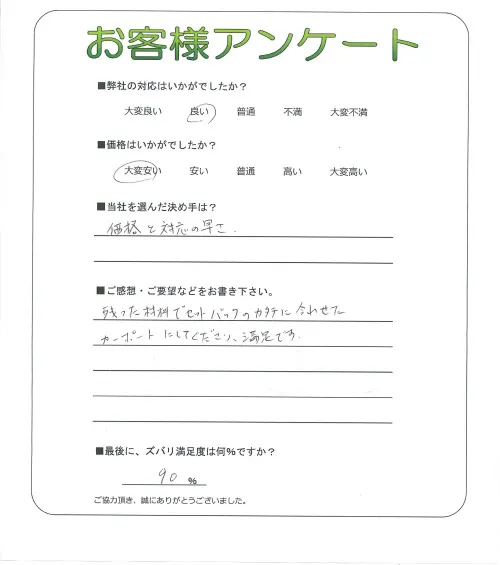 お客様アンケート
■弊社の対応はいかがでしたか？
大変良い 良い 普通 不満 大変不満
■価格はいかがでしたか？
大変安い 安い 普通 高い 大変高い
■当社を選んだ決め手は？
価格と対応の早さ.
■ご感想・ご要望などをお書き下さい。
残った材料でセットバックのカタチに合わせた
カーポートにしてくださり、満足です.
■最後に、ズバリ満足度は何%ですか？
90 %
ご協力頂き、誠にありがとうございました。